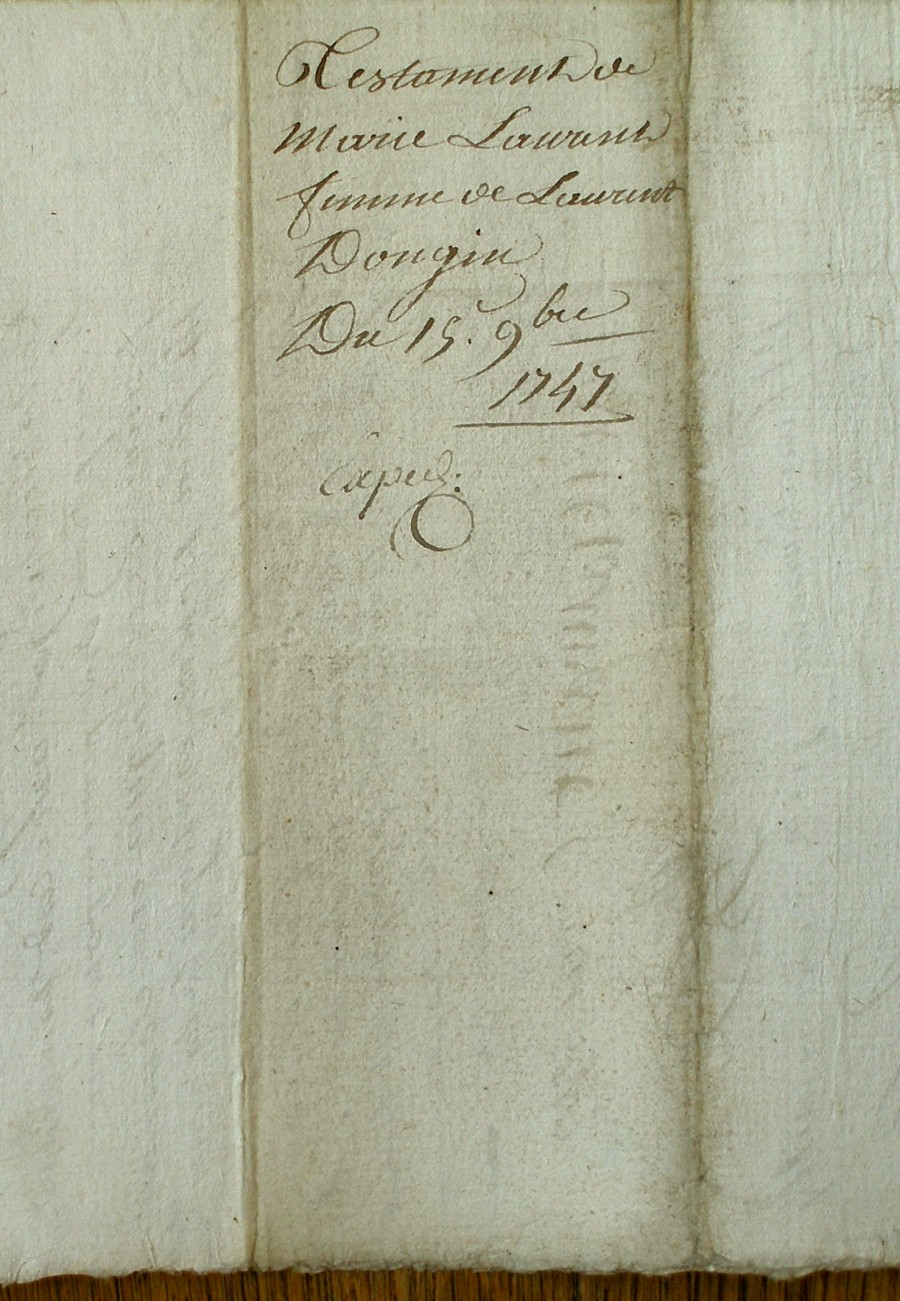 Testament de
Marie Laurent
femme de Laurent
Dongin
Du 15. 9bre
1747